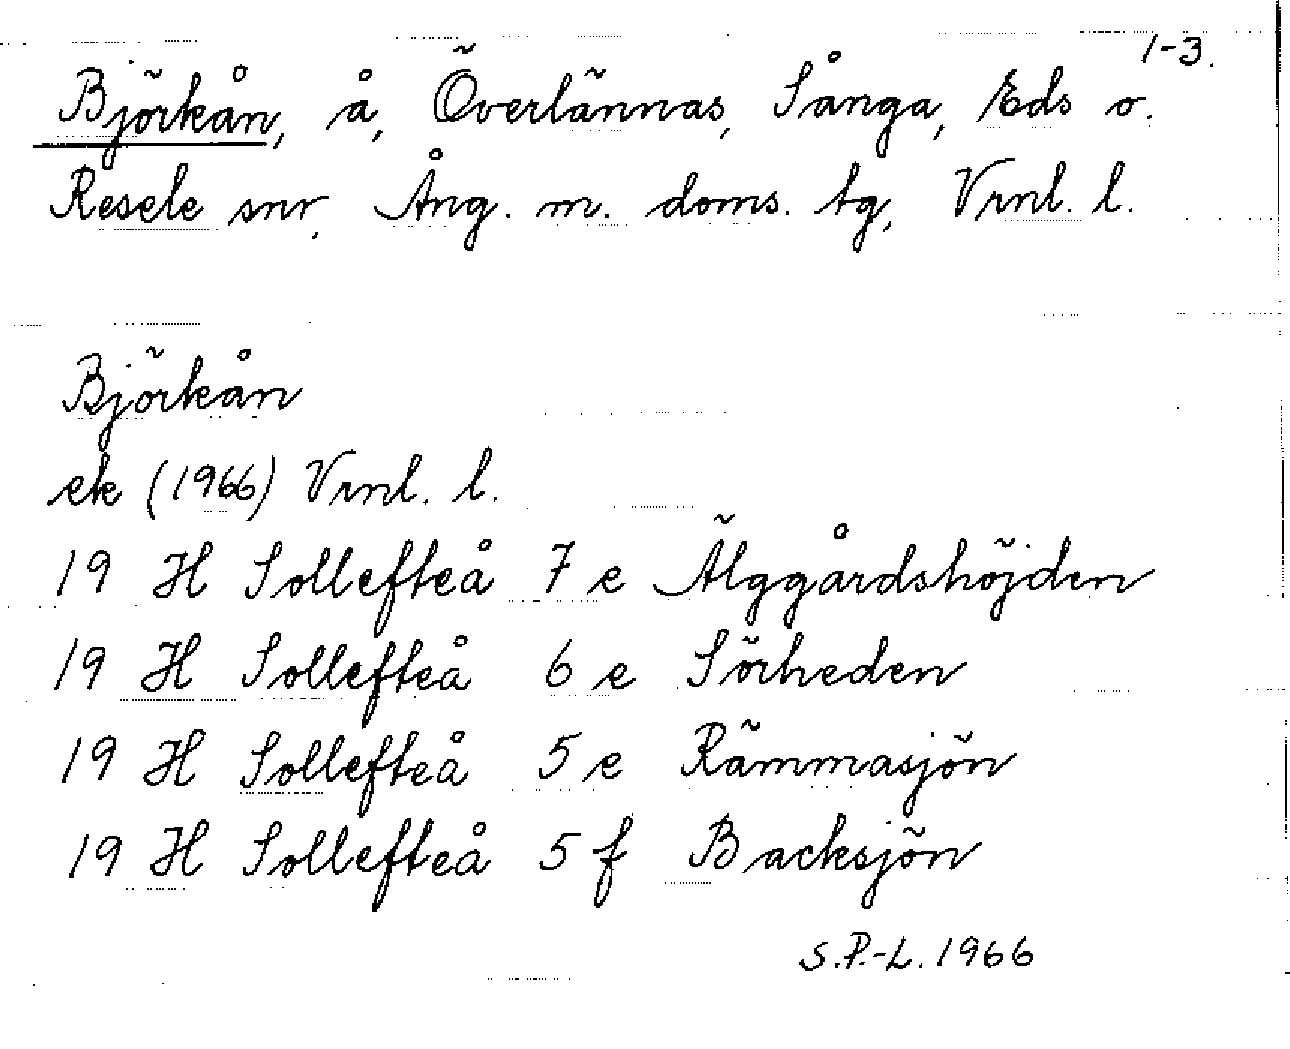 1-3.
Björkån, å, Överlännas, Sånga, Eds o.
Resele snr, Ång. m. doms. tg, Vrnl. l.
Björkån
ek (1966) Vrnl. l.
19 H Sollefteå 7 e Älggårdshöjden
19 H Sollefteå 6 e Sörheden
19 H Sollefteå 5 e Rämmasjön
19 H Sollefteå 5 f Backsjön
S.P.-L. 1966